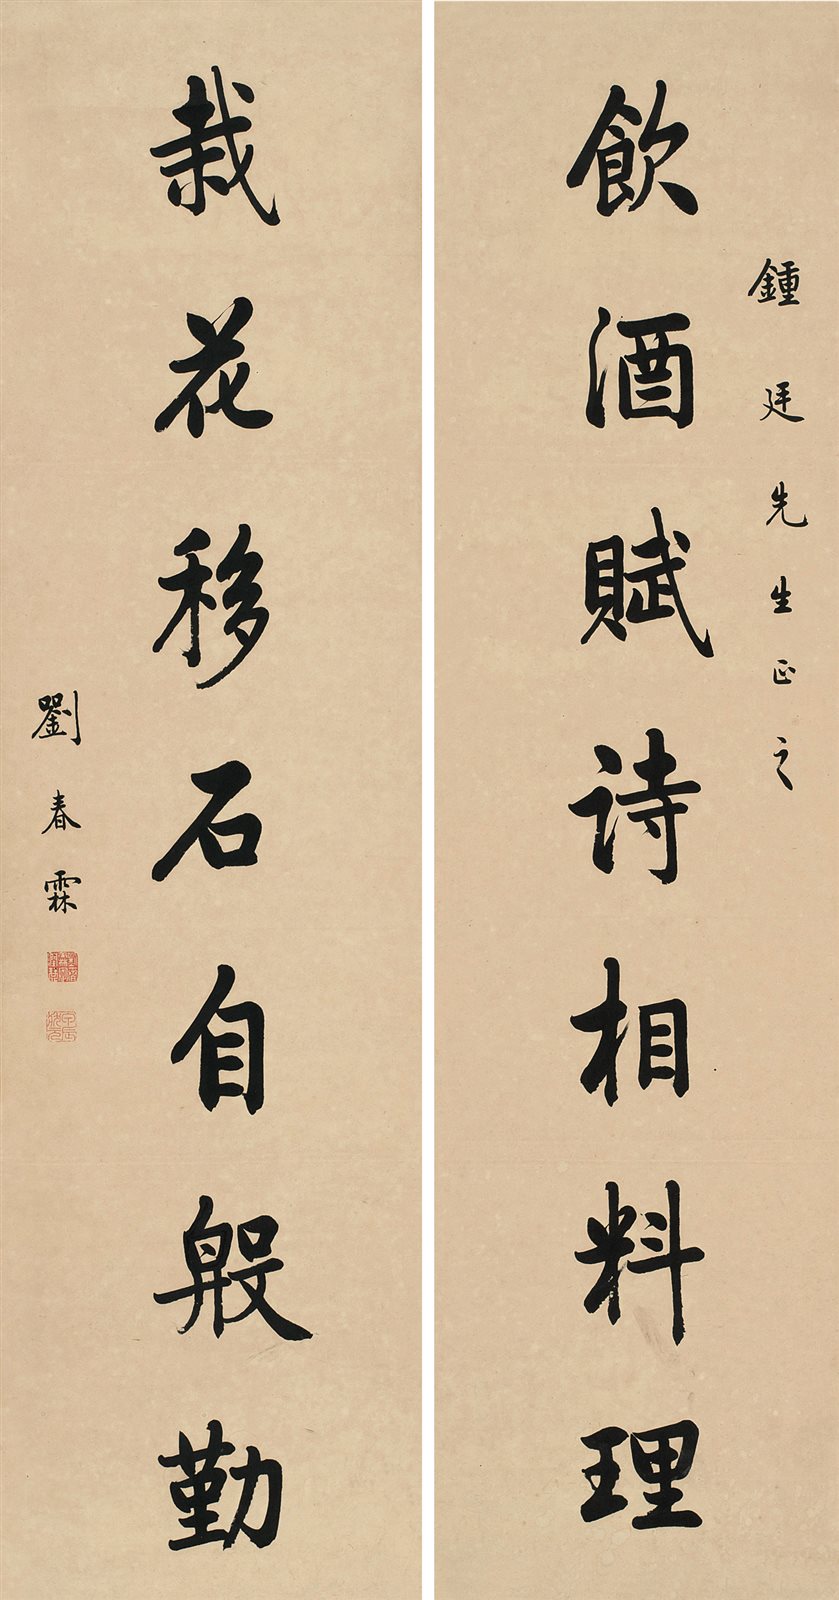 飲酒賦詩相料理
鍾廷先生正之
栽花移石自殷勤
劉春霖